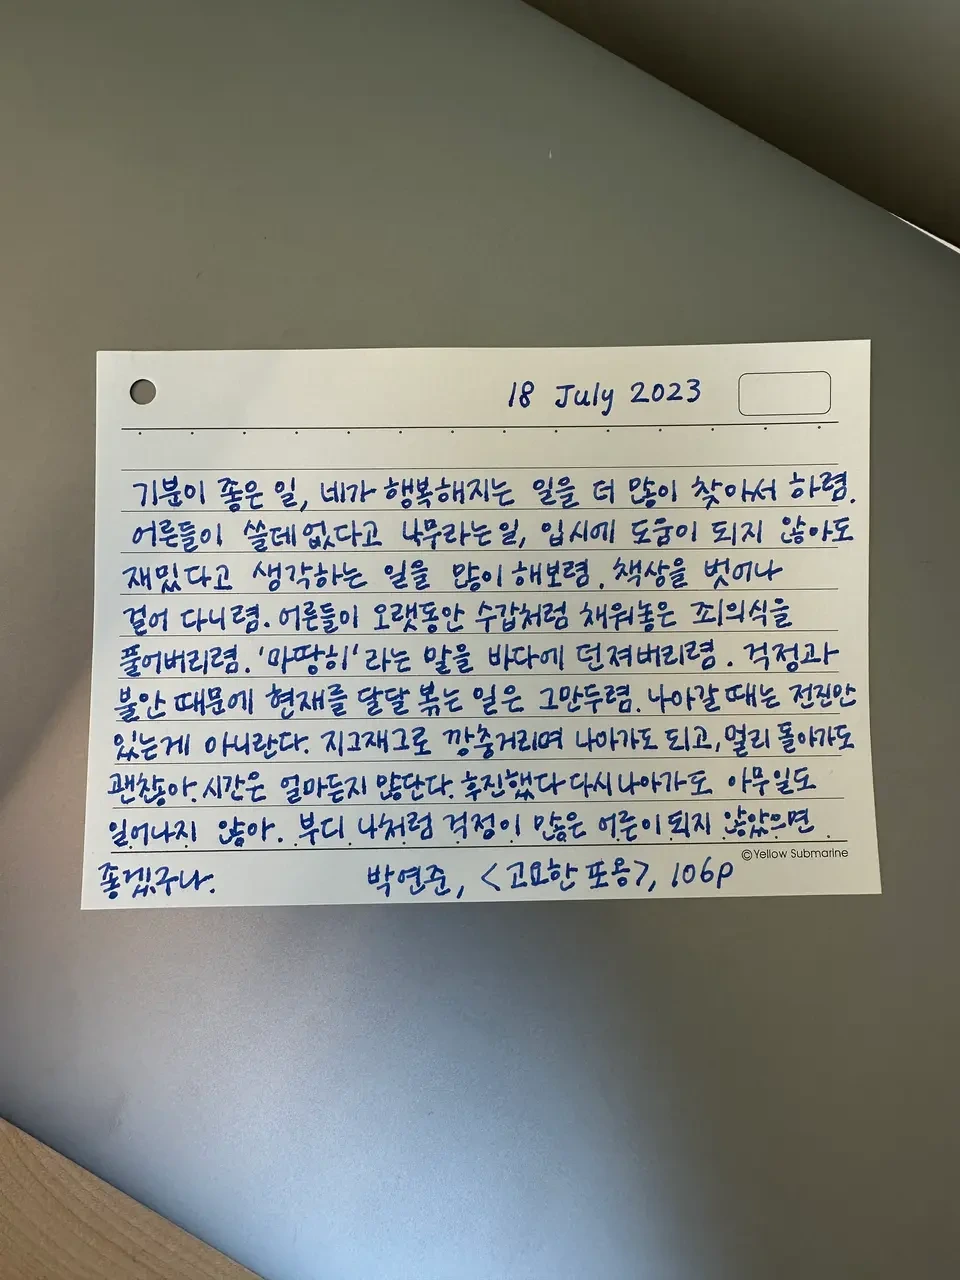 18 July 2023
기분이 좋은 일, 네가 행복해지는 일을 더 많이 찾아서 하렴.
어른들이 쓸데없다고 나무라는 일, 입시에 도움이 되지 않아도
재밌다고 생각하는 일을 많이 해보렴. 책상을 벗어나
걸어 다니렴. 어른들이 오랫동안 수갑처럼 채워놓은 죄의식을
풀어버리렴. '마땅히'라는 말을 바다에 던져버리렴. 걱정과
불안 때문에 현재를 달달 볶는 일은 그만두렴. 나아갈 때는 전진만
있는게 아니란다. 지그재그로 깡충거리며 나아가도 되고, 멀리 돌아가도
괜찮아. 시간은 얼마든지 많단다. 후진했다 다시 나아가도 아무일도
일어나지 않아. 부디 나처럼 걱정이 많은 어른이 되지 않았으면
©Yellow Submarine
좋겠구나. 박연준, <고요한 포옹>, 106p